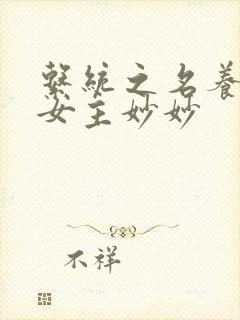 繫統之名養
女主妙妙
不祥